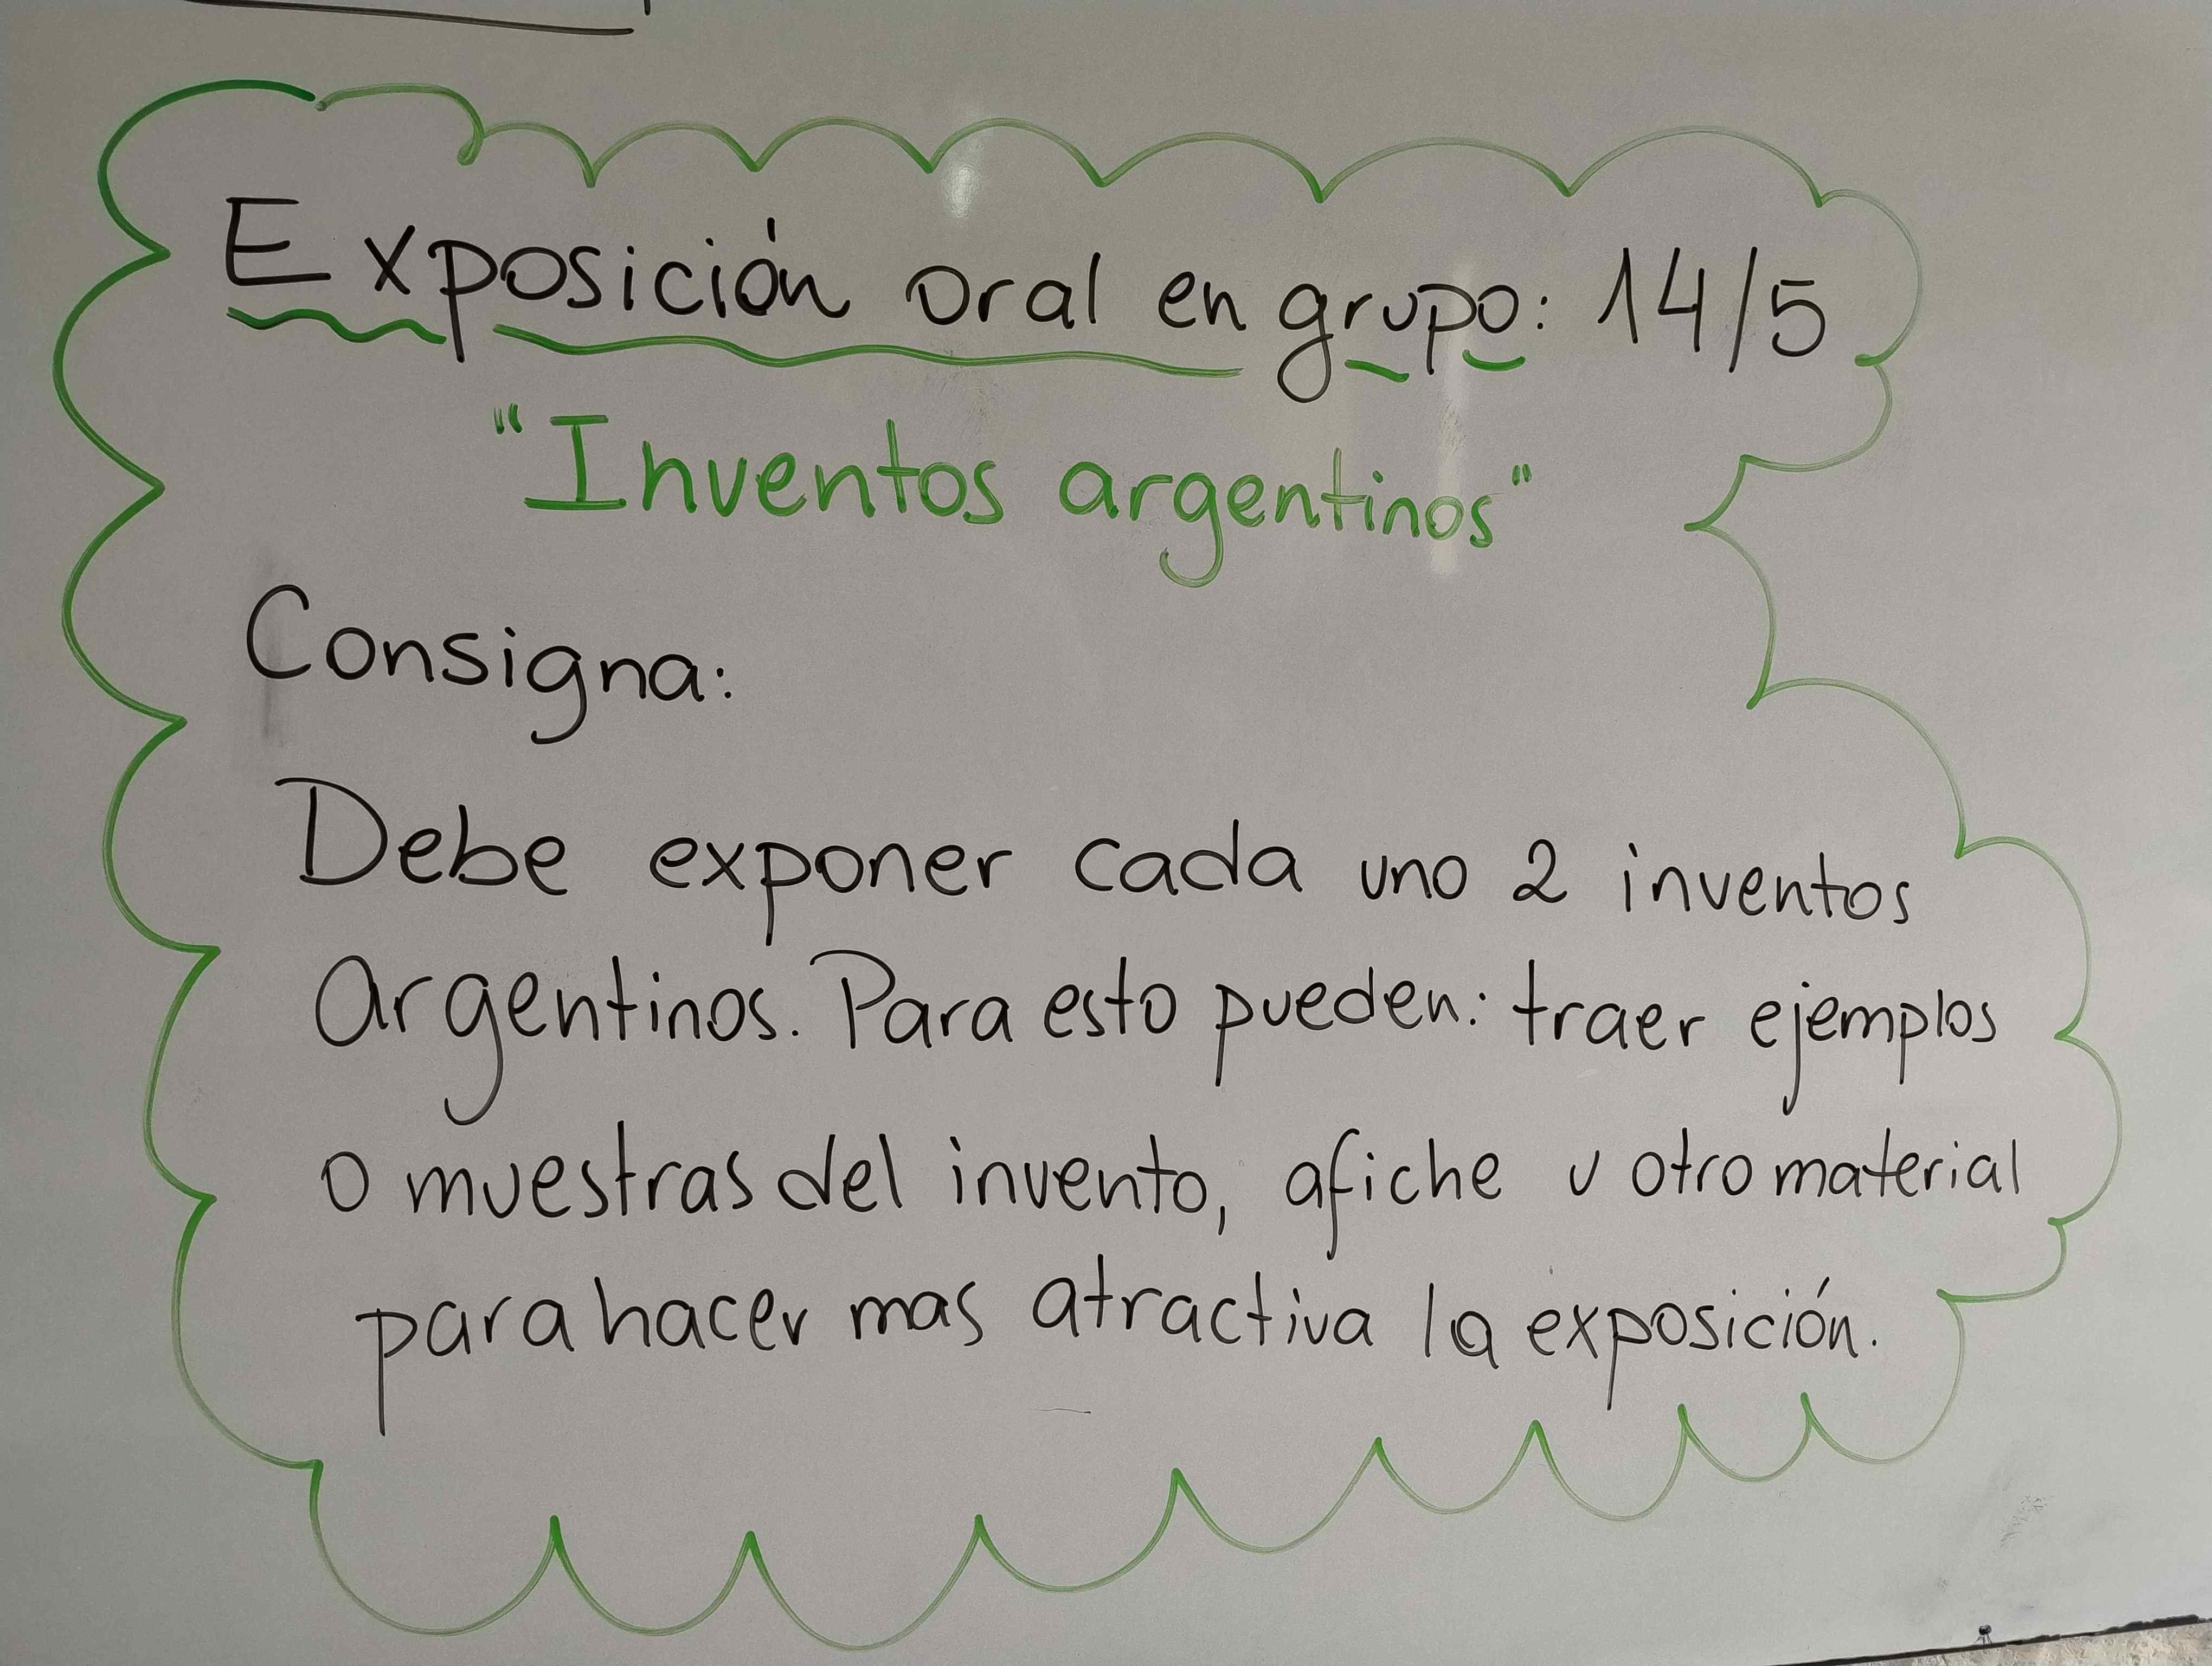 Exposición oral en grupo: 14/5
"Inventos argentinos"
Consigna:
Debe exponer cada uno 2 inventos
argentinos. Para esto pueden: traer ejemplos
o muestras del invento, afiche u otro material
para hacer mas atractiva la exposición.